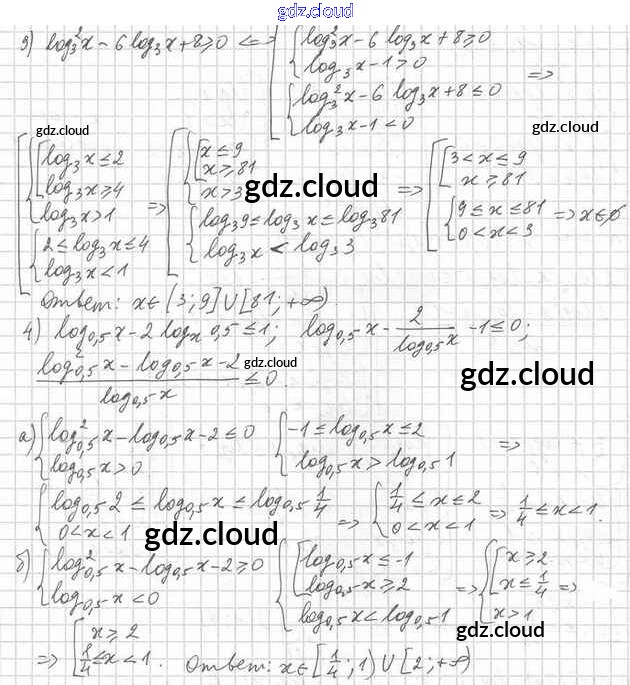 gdz.cloud
3) log₃²x − 6 log₃x + 8 ≥ 0 ⇔ [ { log₃²x − 6 log₃x + 8 ≥ 0
log₃x − 1 > 0
{ log₃²x − 6 log₃x + 8 ≤ 0
log₃x − 1 < 0 ⇒
gdz.cloud
gdz.cloud
[ { [ log₃x ≤ 2
log₃x ≥ 4
log₃x > 1
{ 2 ≤ log₃x ≤ 4
log₃x < 1
⇒ [ { [ x ≤ 9
x ≥ 81
x > 3
{ log₃9 ≤ log₃x ≤ log₃81
log₃x < log₃3
gdz.cloud
⇒ [ [ 3 < x ≤ 9
x ≥ 81
{ 9 ≤ x ≤ 81
0 < x < 3 ⇒ x ∈ ∅
Ответ: x ∈ (3; 9] ∪ [81; +∞)
4) log₀,₅x − 2 logₓ0,5 ≤ 1; log₀,₅x − 2/log₀,₅x − 1 ≤ 0;
(log²₀,₅x − log₀,₅x − 2)/log₀,₅x ≤ 0.
gdz.cloud
gdz.cloud
а) { log²₀,₅x − log₀,₅x − 2 ≤ 0
log₀,₅x > 0
{ −1 ≤ log₀,₅x ≤ 2
log₀,₅x > log₀,₅1 ⇒
{ log₀,₅2 ≤ log₀,₅x ≤ log₀,₅ 1/4
0 < x < 1
⇒ { 1/4 ≤ x ≤ 2
0 < x < 1 ⇒ 1/4 ≤ x < 1.
gdz.cloud
б) { log²₀,₅x − log₀,₅x − 2 ≥ 0
log₀,₅x < 0
{ [ log₀,₅x ≤ −1
log₀,₅x ≥ 2
log₀,₅x < log₀,₅1
⇒ { [ x ≥ 2
x ≤ 1/4
x > 1 ⇒
gdz.cloud
⇒ [ x ≥ 2
1/4 ≤ x < 1. Ответ: x ∈ [1/4; 1) ∪ [2; +∞)